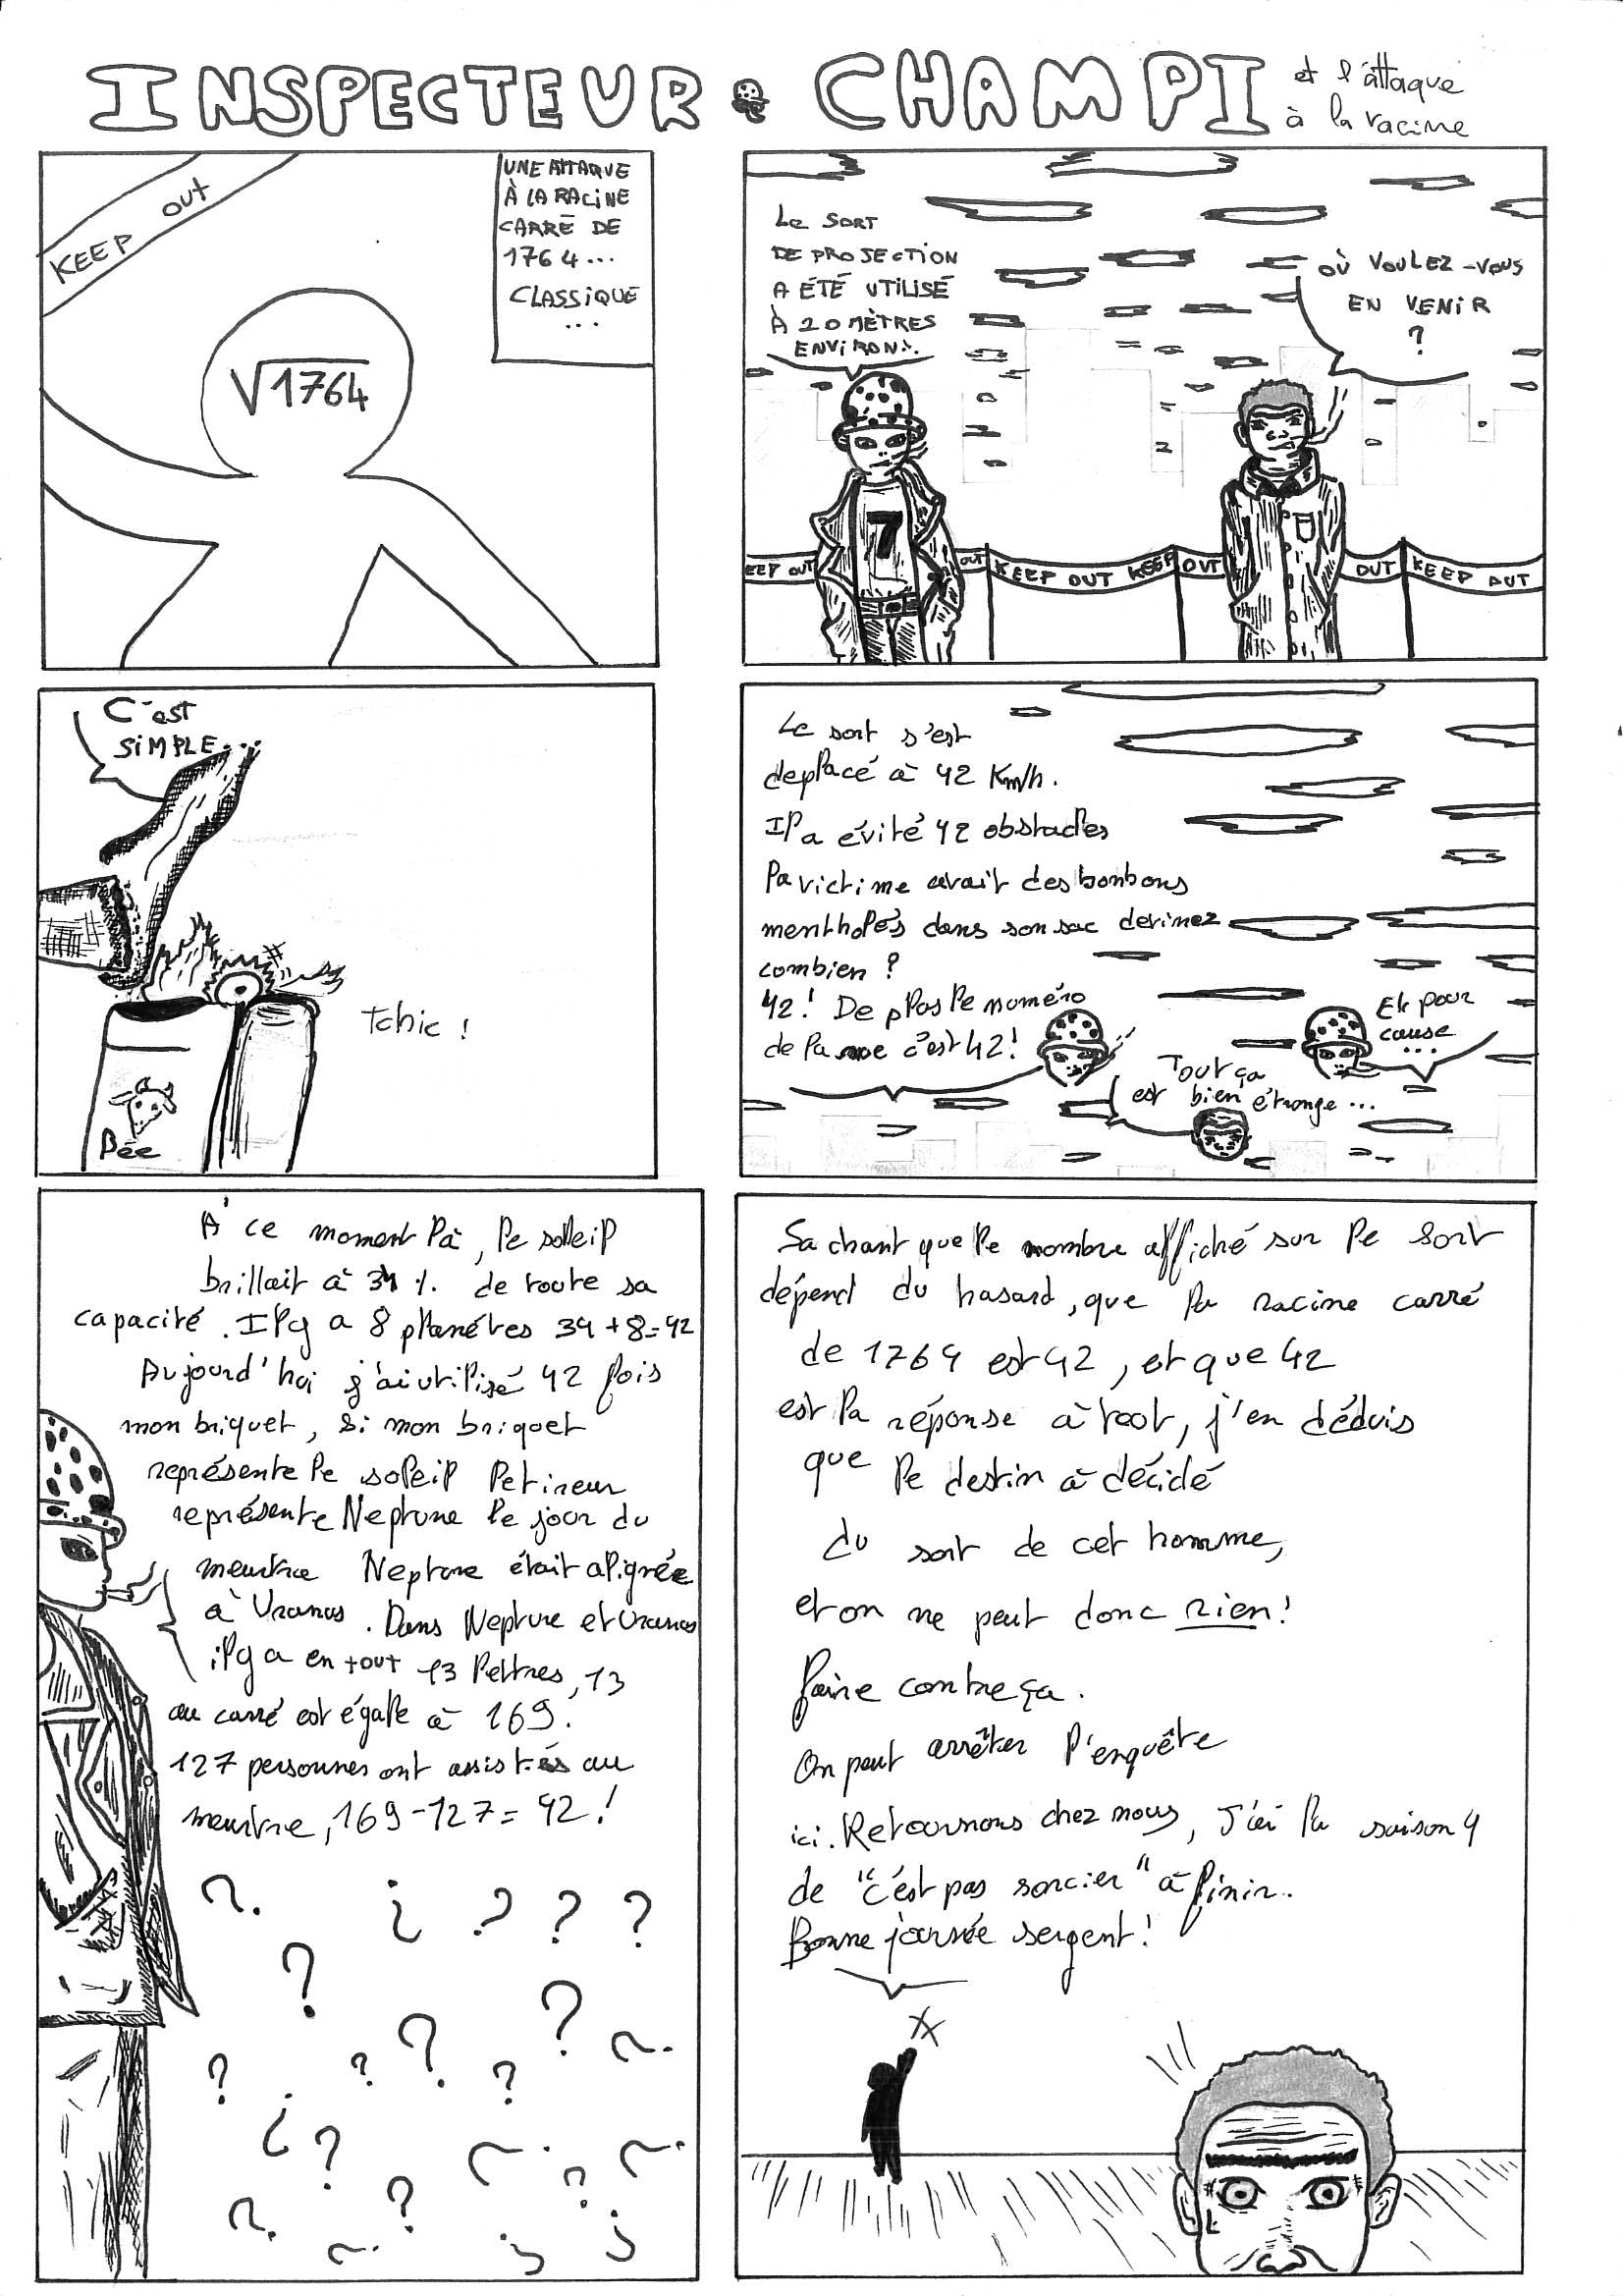 INSPECTEUR CHAMPI
et l'attaque
à la racine
KEEP OUT
UNE ATTAQUE
À LA RACINE
CARRÉ DE
1764...
CLASSIQUE
...
√1764
LE SORT
DE PROJECTION
A ÉTÉ UTILISÉ
À 20 MÈTRES
ENVIRON.
OÙ VOULEZ-VOUS
EN VENIR
?
7
KEEP OUT OUT KEEP OUT KEEP OUT OUT KEEP OUT
C'est
SIMPLE...
Tchic !
Bée
Le sort s'est
deplacé à 42 Km/h.
Il a évité 42 obstacles
la victime avait des bonbons
mentholés dans son sac devinez
combien ?
42 ! De plus le numéro
de la rue c'est 42 !
Et pour
cause
...
Tout ça
est bien étrange...
À ce moment là, le soleil
brillait à 34 %. de toute sa
capacité. Il y a 8 planétes 34+8=42
Aujourd'hui j'ai utilisé 42 fois
mon briquet, si mon briquet
représente le soleil le tireur
représente Neptune le jour du
meurtre Neptune était alignée
à Uranus. Dans Neptune et Uranus
il y a en tout 13 lettres, 13
au carré est égale à 169.
127 personnes ont assistés au
meurtre, 169-127= 42 !
? ? ? ? ?
? ? ? ?
? ? ? ? ?
? ? ? ?
? ? ? ? ? ?
Sachant que le nombre affiché sur le sort
dépend du hasard, que la racine carré
de 1764 est 42, et que 42
est la réponse à tout, j'en déduis
que le destin à décidé
du sort de cet homme,
et on ne peut donc rien !
faire contre ça.
On peut arrêter l'enquête
ici. Retournons chez nous, J'ai la saison 4
de "c'est pas sorcier" à finir.
Bonne journée sergent !